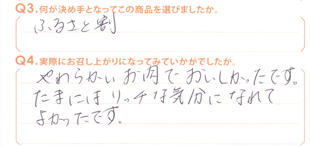 Q3.何が決め手となってこの商品を選びましたか。
ふるさと割
Q4.実際にお召し上がりになってみていかがでしたか。
やわらかいお肉でおいしかったです。
たまにはリッチな気分になれて
よかったです。